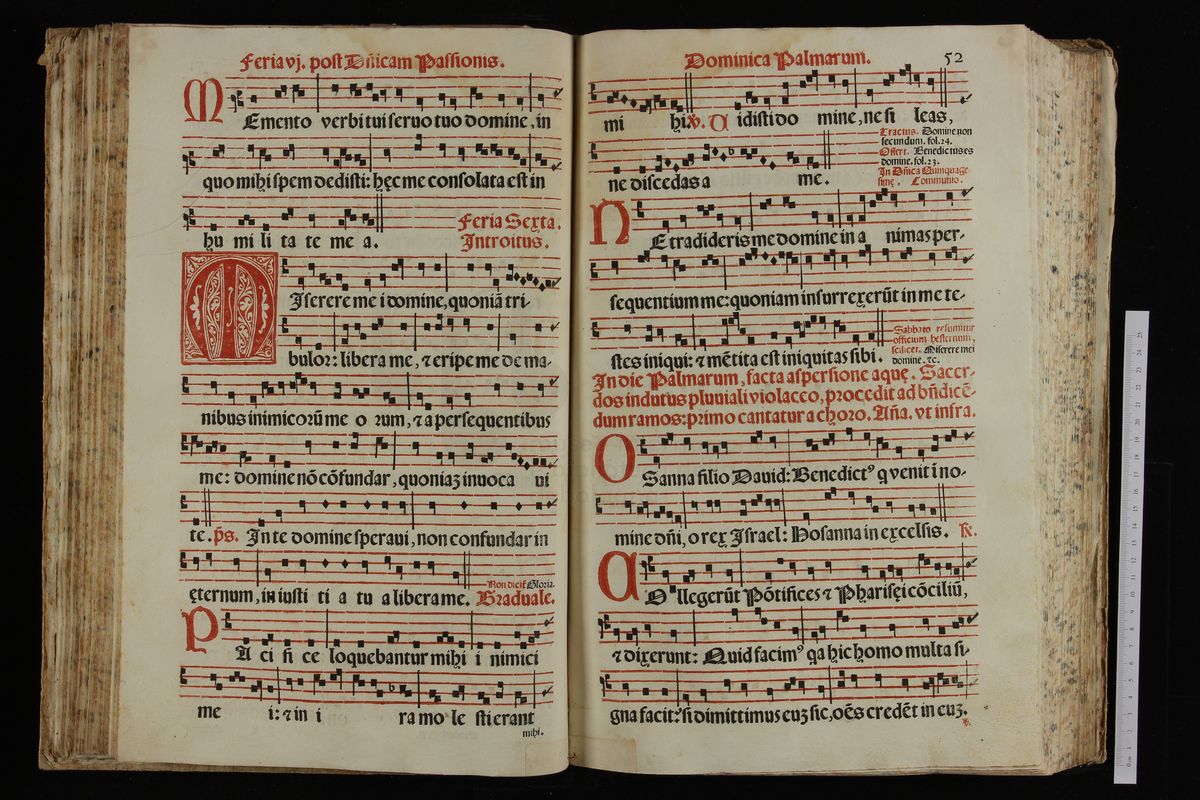 Feria vj. post Dñicam Passionis.
MEmento verbi tui seruo tuo domine, in
quo mihi spem dedisti: hęc me consolata est in
hu mi li ta te me a.
Feria Sexta.
Introitus.
MIserere me i domine, quoniã tri-
bulor: libera me, ⁊ eripe me de ma-
nibus inimicorũ me o rum, ⁊ a persequentibus
me: domine nõ cõfundar, quoniaꝫ inuoca ui
te. ps. In te domine speraui, non confundar in
ęternum, in iusti ti a tu a libera me.
Non dicit̃ Gloria.
Graduale.
PA ci fi ce loquebantur mihi i nimici
me i: ⁊ in i ra mo le sti erant
mihi.
Dominica Palmarum. 52
mi hi. ℣. U idisti do mine, ne si leas,
ne discedas a me.
Tractus. Domine non
secundum. fol. 24.
Offert. Benedictus es
domine. fol. 23.
In Dñica Quinquage
simę. Communio.
NE tradideris me domine in a nimas per-
sequentium me: quoniam insurrexerũt in me te-
stes iniqui: ⁊ mẽtita est iniquitas sibi.
Sabbato resumitur
officium hesternum,
scilicet. Miserere mei
domine. ⁊c.
In die Palmarum, facta aspersione aquę. Sacer-
dos indutus pluuiali violaceo, procedit ad bñdicẽ-
dum ramos: primo cantatur a choro. Aña. vt infra.
OSanna filio Dauid: Benedictꝰ q venit ĩ no-
mine dñi, o rex Israel: Hosanna in excelsis. ℟.
COllegerũt Põtifices ⁊ Pharisęi cõciliũ,
⁊ dixerunt: Quid facimꝰ qa hic homo multa si-
gna facit? si dimittimus euꝫ sic, oẽs credẽt in euꝫ.
℣.